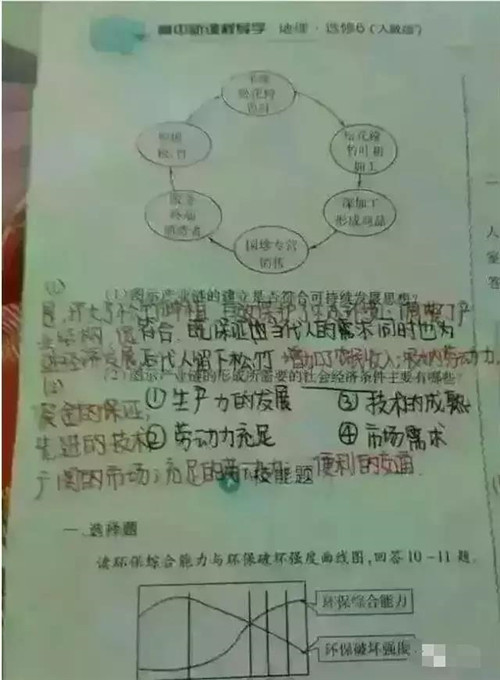 高中新课程导学 地理·选修6(人教版)
松花粉
松花粉
竹叶初
加工
深加工
形成商品
国珍专营
销售
服务
终端
消费者
(1)
(1)图示产业链的建立是否符合可持续发展思想?
符合,既保证当代人的需求同时也为
后代人留下松竹,增加了农民收入,吸纳劳动力
(2)
(2)图示产业链的形成所需要的社会经济条件主要有哪些?
资金的保证,
①生产力的发展 ③技术的成熟
先进的技术
②劳动力充足 ④市场需求
广阔的市场;充足的劳动力;便利的交通
技能题
一、选择题
读环保综合能力与环保破坏强度曲线图,回答10-11题。
环保综合能力
环保破坏强度